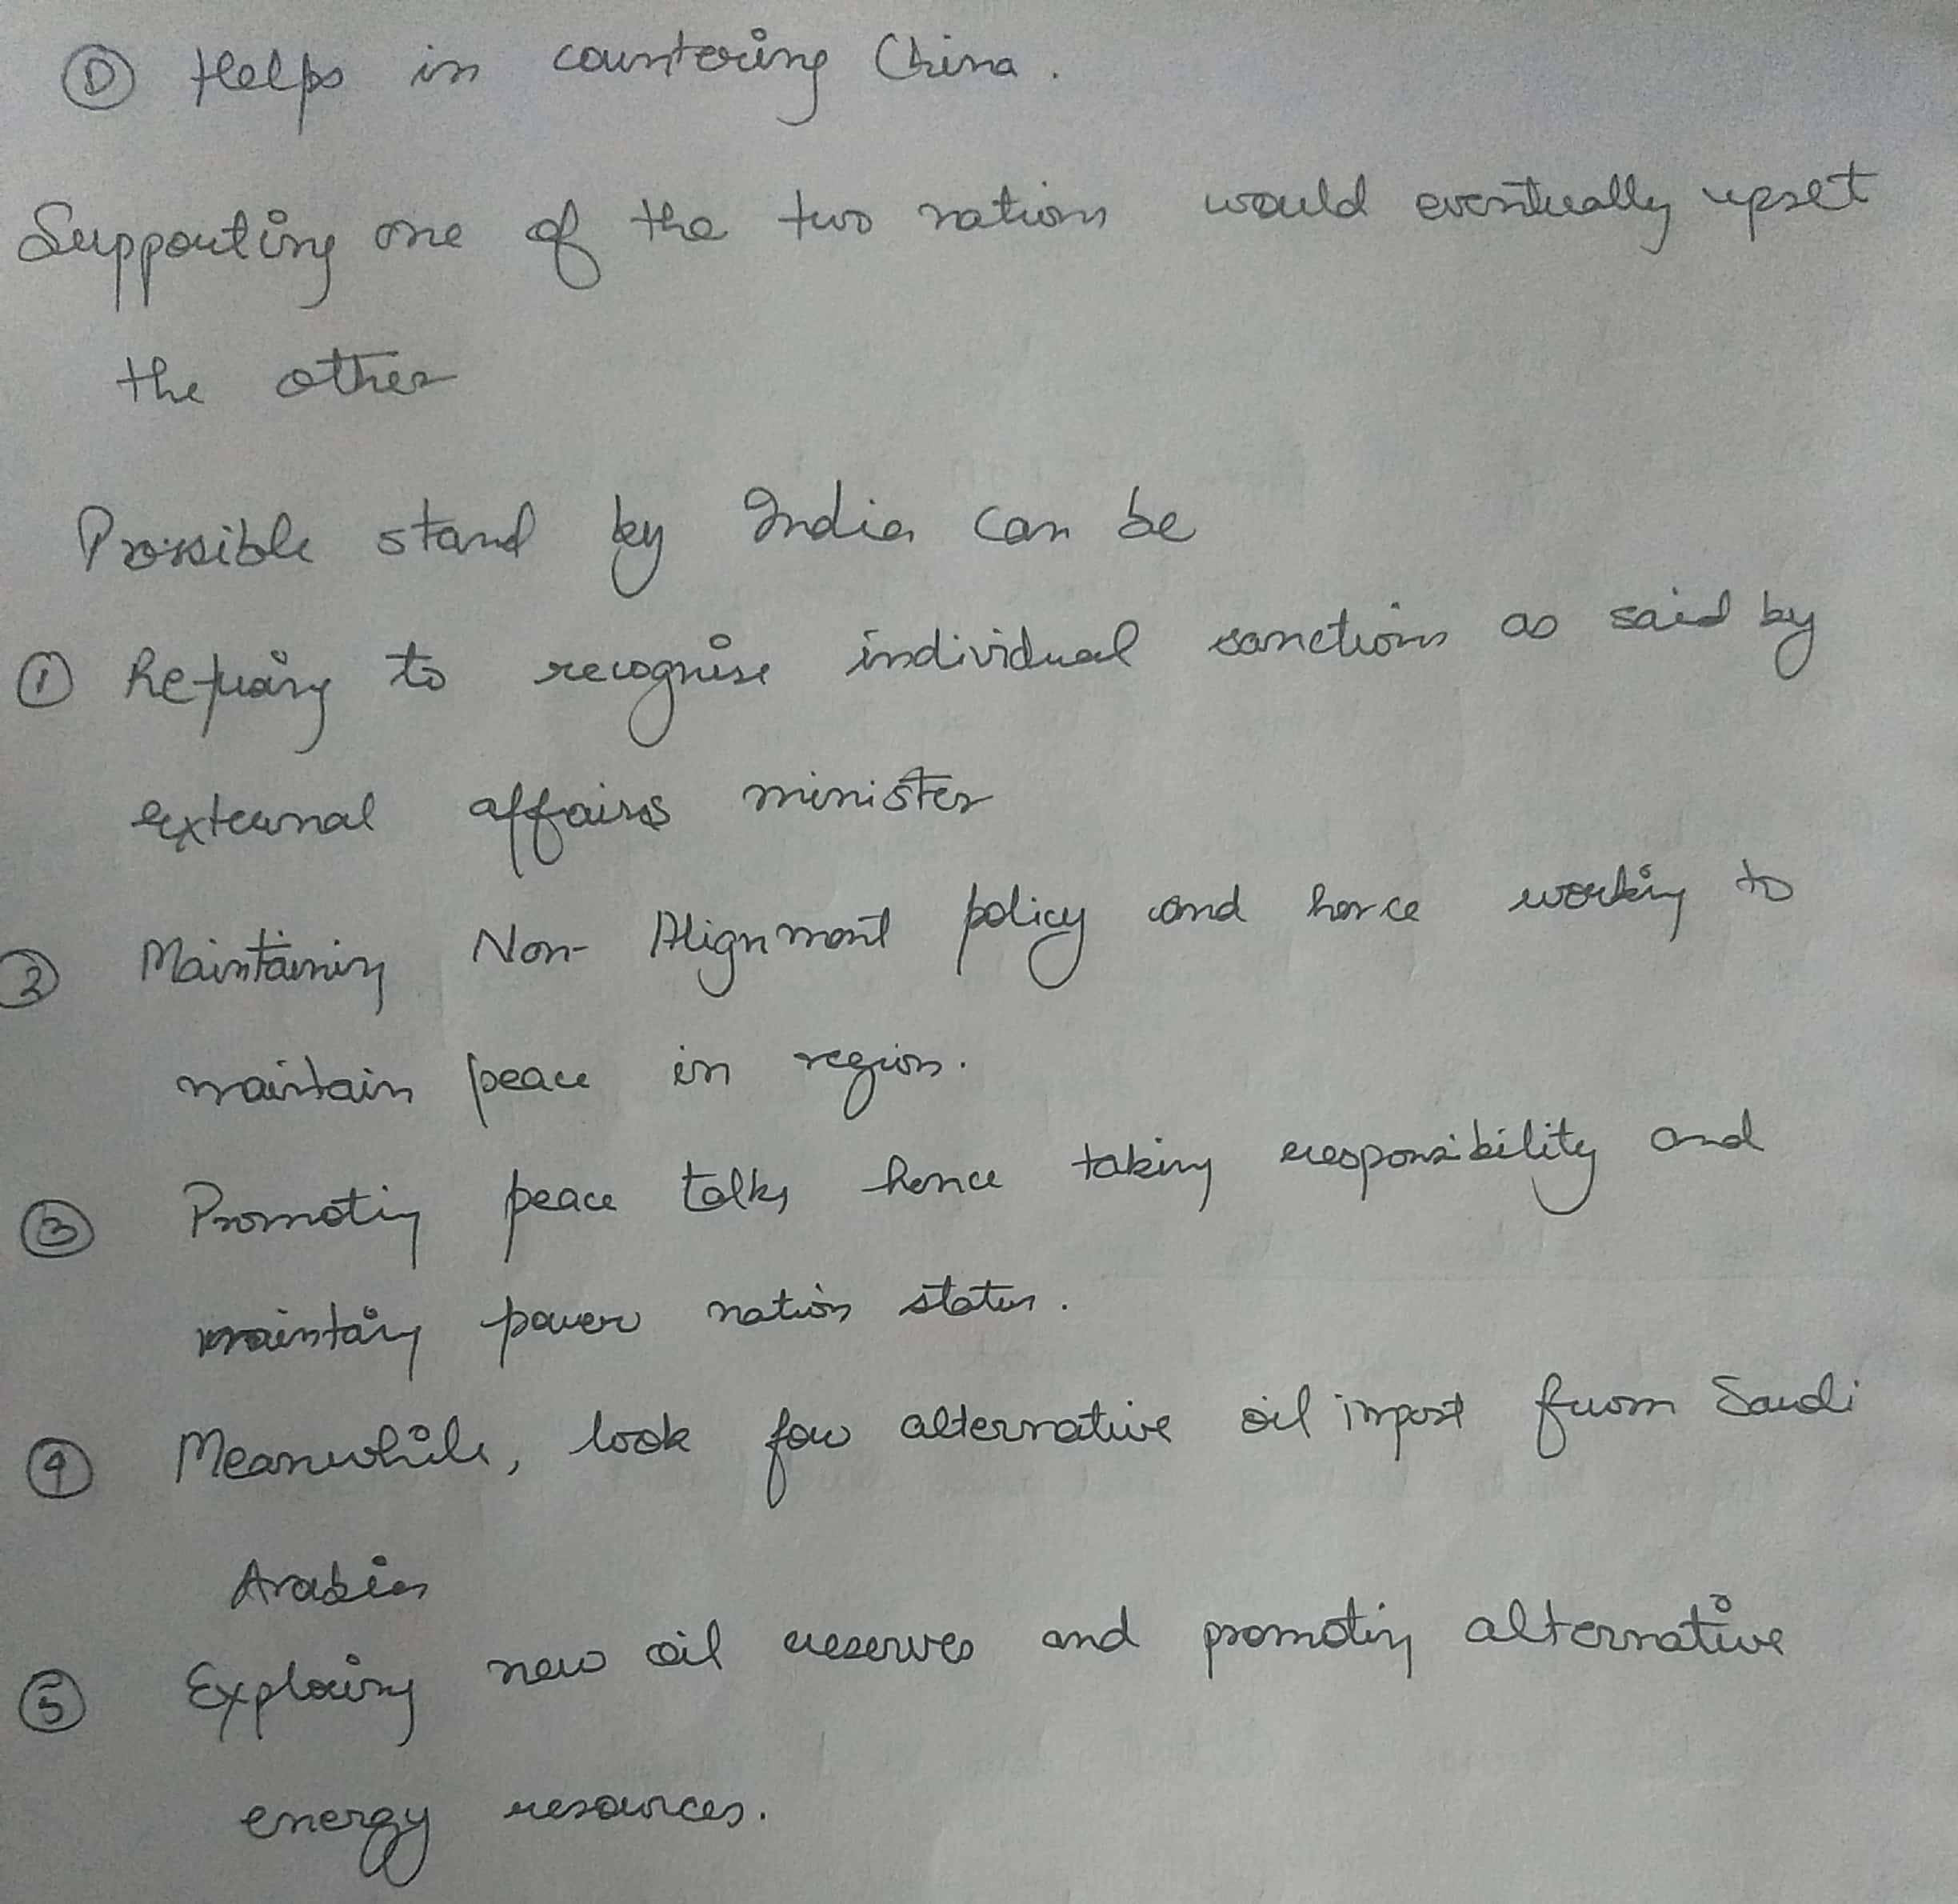 Ⓓ Helps in countering China.
Supporting one of the two nations would eventually upset
the other
Possible stand by India can be
① Refusing to recognise individual sanctions as said by
external affairs minister
② Maintaining Non-Alignment policy and hence working to
maintain peace in region.
③ Promoting peace talks, hence taking responsibility and
maintaing power nation status.
④ Meanwhile, look for alternative oil import from Saudi
Arabia
⑤ Exploring new oil reserves and promoting alternative
energy resources.